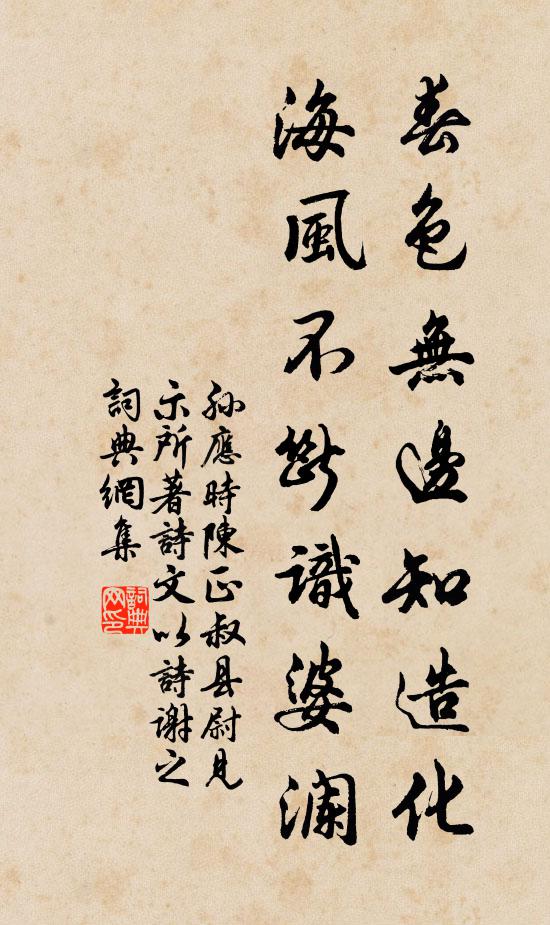 春色無邊知造化
海風不斷識婆瀾
孫應時陳正叔县尉見
示所著詩文以詩謝之
詞典網集
詞典
网印